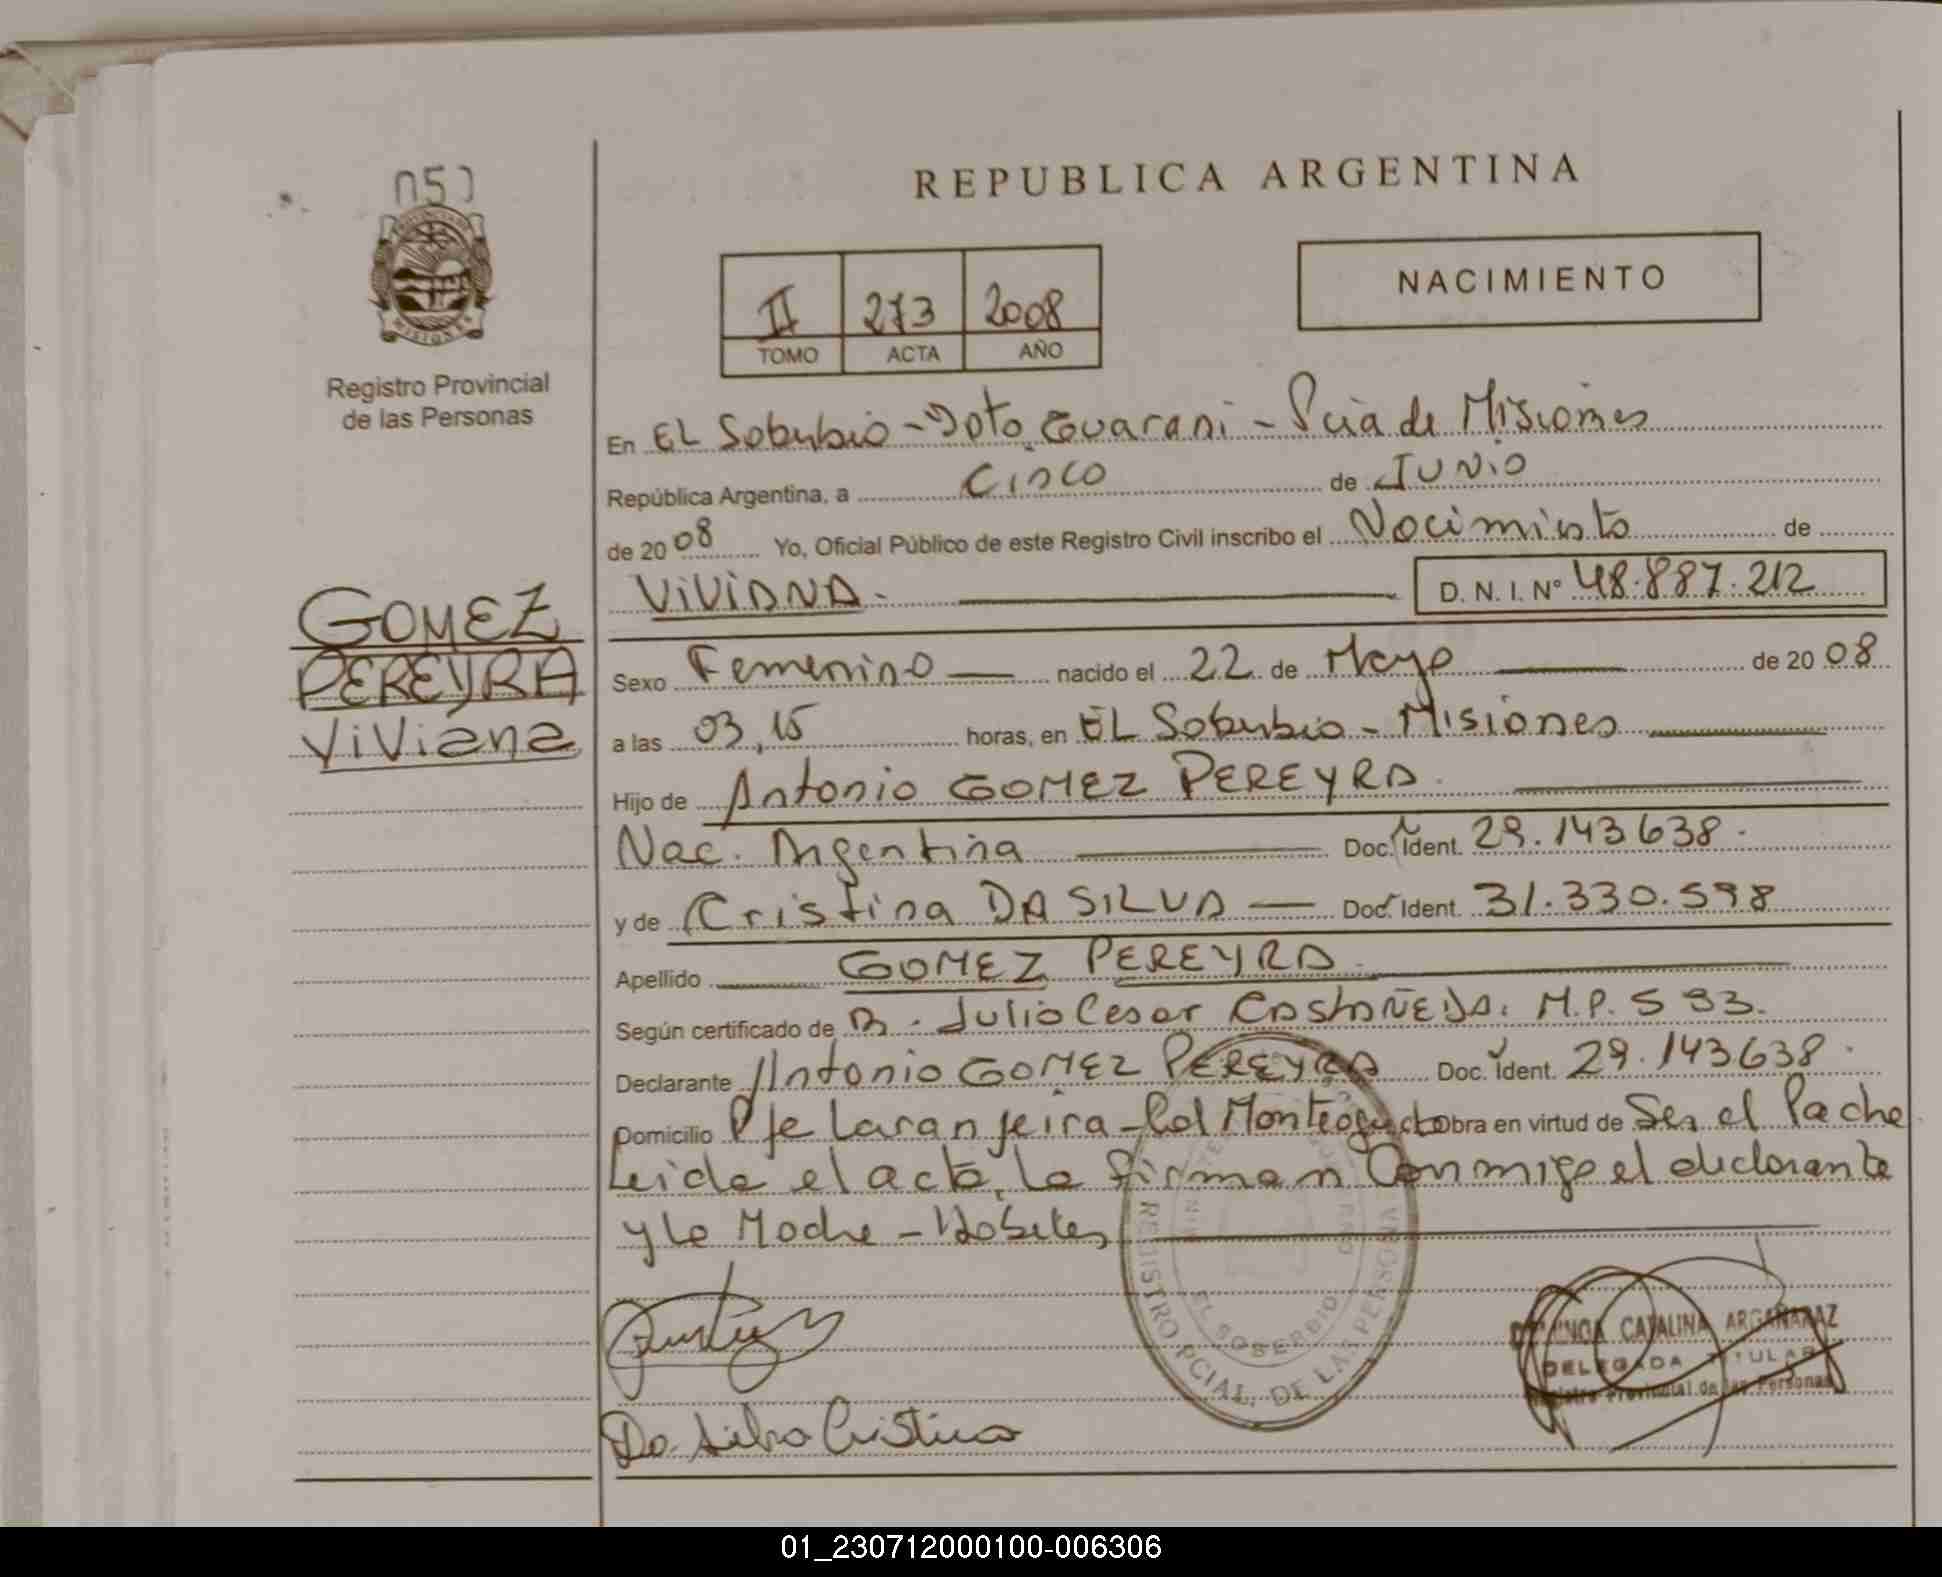 051
REPUBLICA ARGENTINA
MISIONES
Registro Provincial
de las Personas
NACIMIENTO
II 273 2008
TOMO ACTA AÑO
En EL Soberbio - Dpto Guarani - Pcia de Misiones
República Argentina, a Cinco de JUNIO
de 2008 Yo, Oficial Público de este Registro Civil inscribo el Nacimiento de
VIVIANA.- D. N. I. Nº 48.887.212
GOMEZ
PEREYRA
Viviana
Sexo Femenino nacido el 22 de Mayo de 2008
a las 03,15 horas, en EL Soberbio - Misiones
Hijo de Antonio GOMEZ PEREYRA.
Nac. Argentina Doc. Ident. 29.143638.
y de Cristina DA SILVA Doc. Ident. 31.330.598
Apellido GOMEZ PEREYRA.
Según certificado de Dr. Julio Cesar CASTAÑEDA. M.P. 593.
Declarante Antonio GOMEZ PEREYRA Doc. Ident. 29.143638.
Domicilio Pje Laranjeira - Col Monteagudo Obra en virtud de Ser el Padre
Leida el acta, la firman Conmigo el declarante
y la Madre - Habiles
REGISTRO PCIAL. DE LAS PERSONAS
EL SOBERBIO
CATALINA ARGAÑARAZ
DELEGADA TITULAR
Registro Provincial de las Personas
Da Silva Cristina
01_230712000100-006306